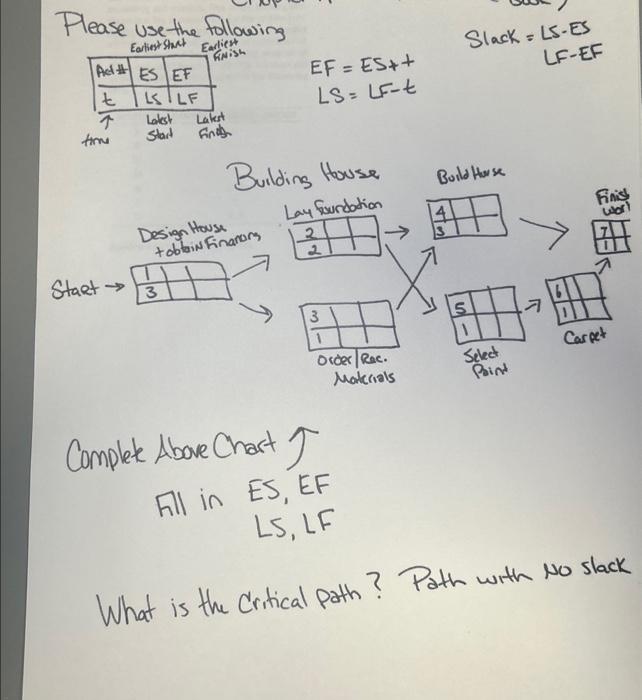 Please use the following
Earliest Start Earliest Finish
Slack = LS-ES
LF-EF
Act # ES EF
t LS LF
EF = ES+t
LS = LF-t
time
Latest Start
Latest Finish
Building House
Build House
Lay foundation
Finish work
Design House
+ obtain Financing
Start →
1
3
2
2
4
3
7
1
3
1
5
1
6
1
Order/Rec.
Materials
Select
Paint
Carpet
Complete Above Chart
Fill in ES, EF
LS, LF
What is the Critical path? Path with No slack